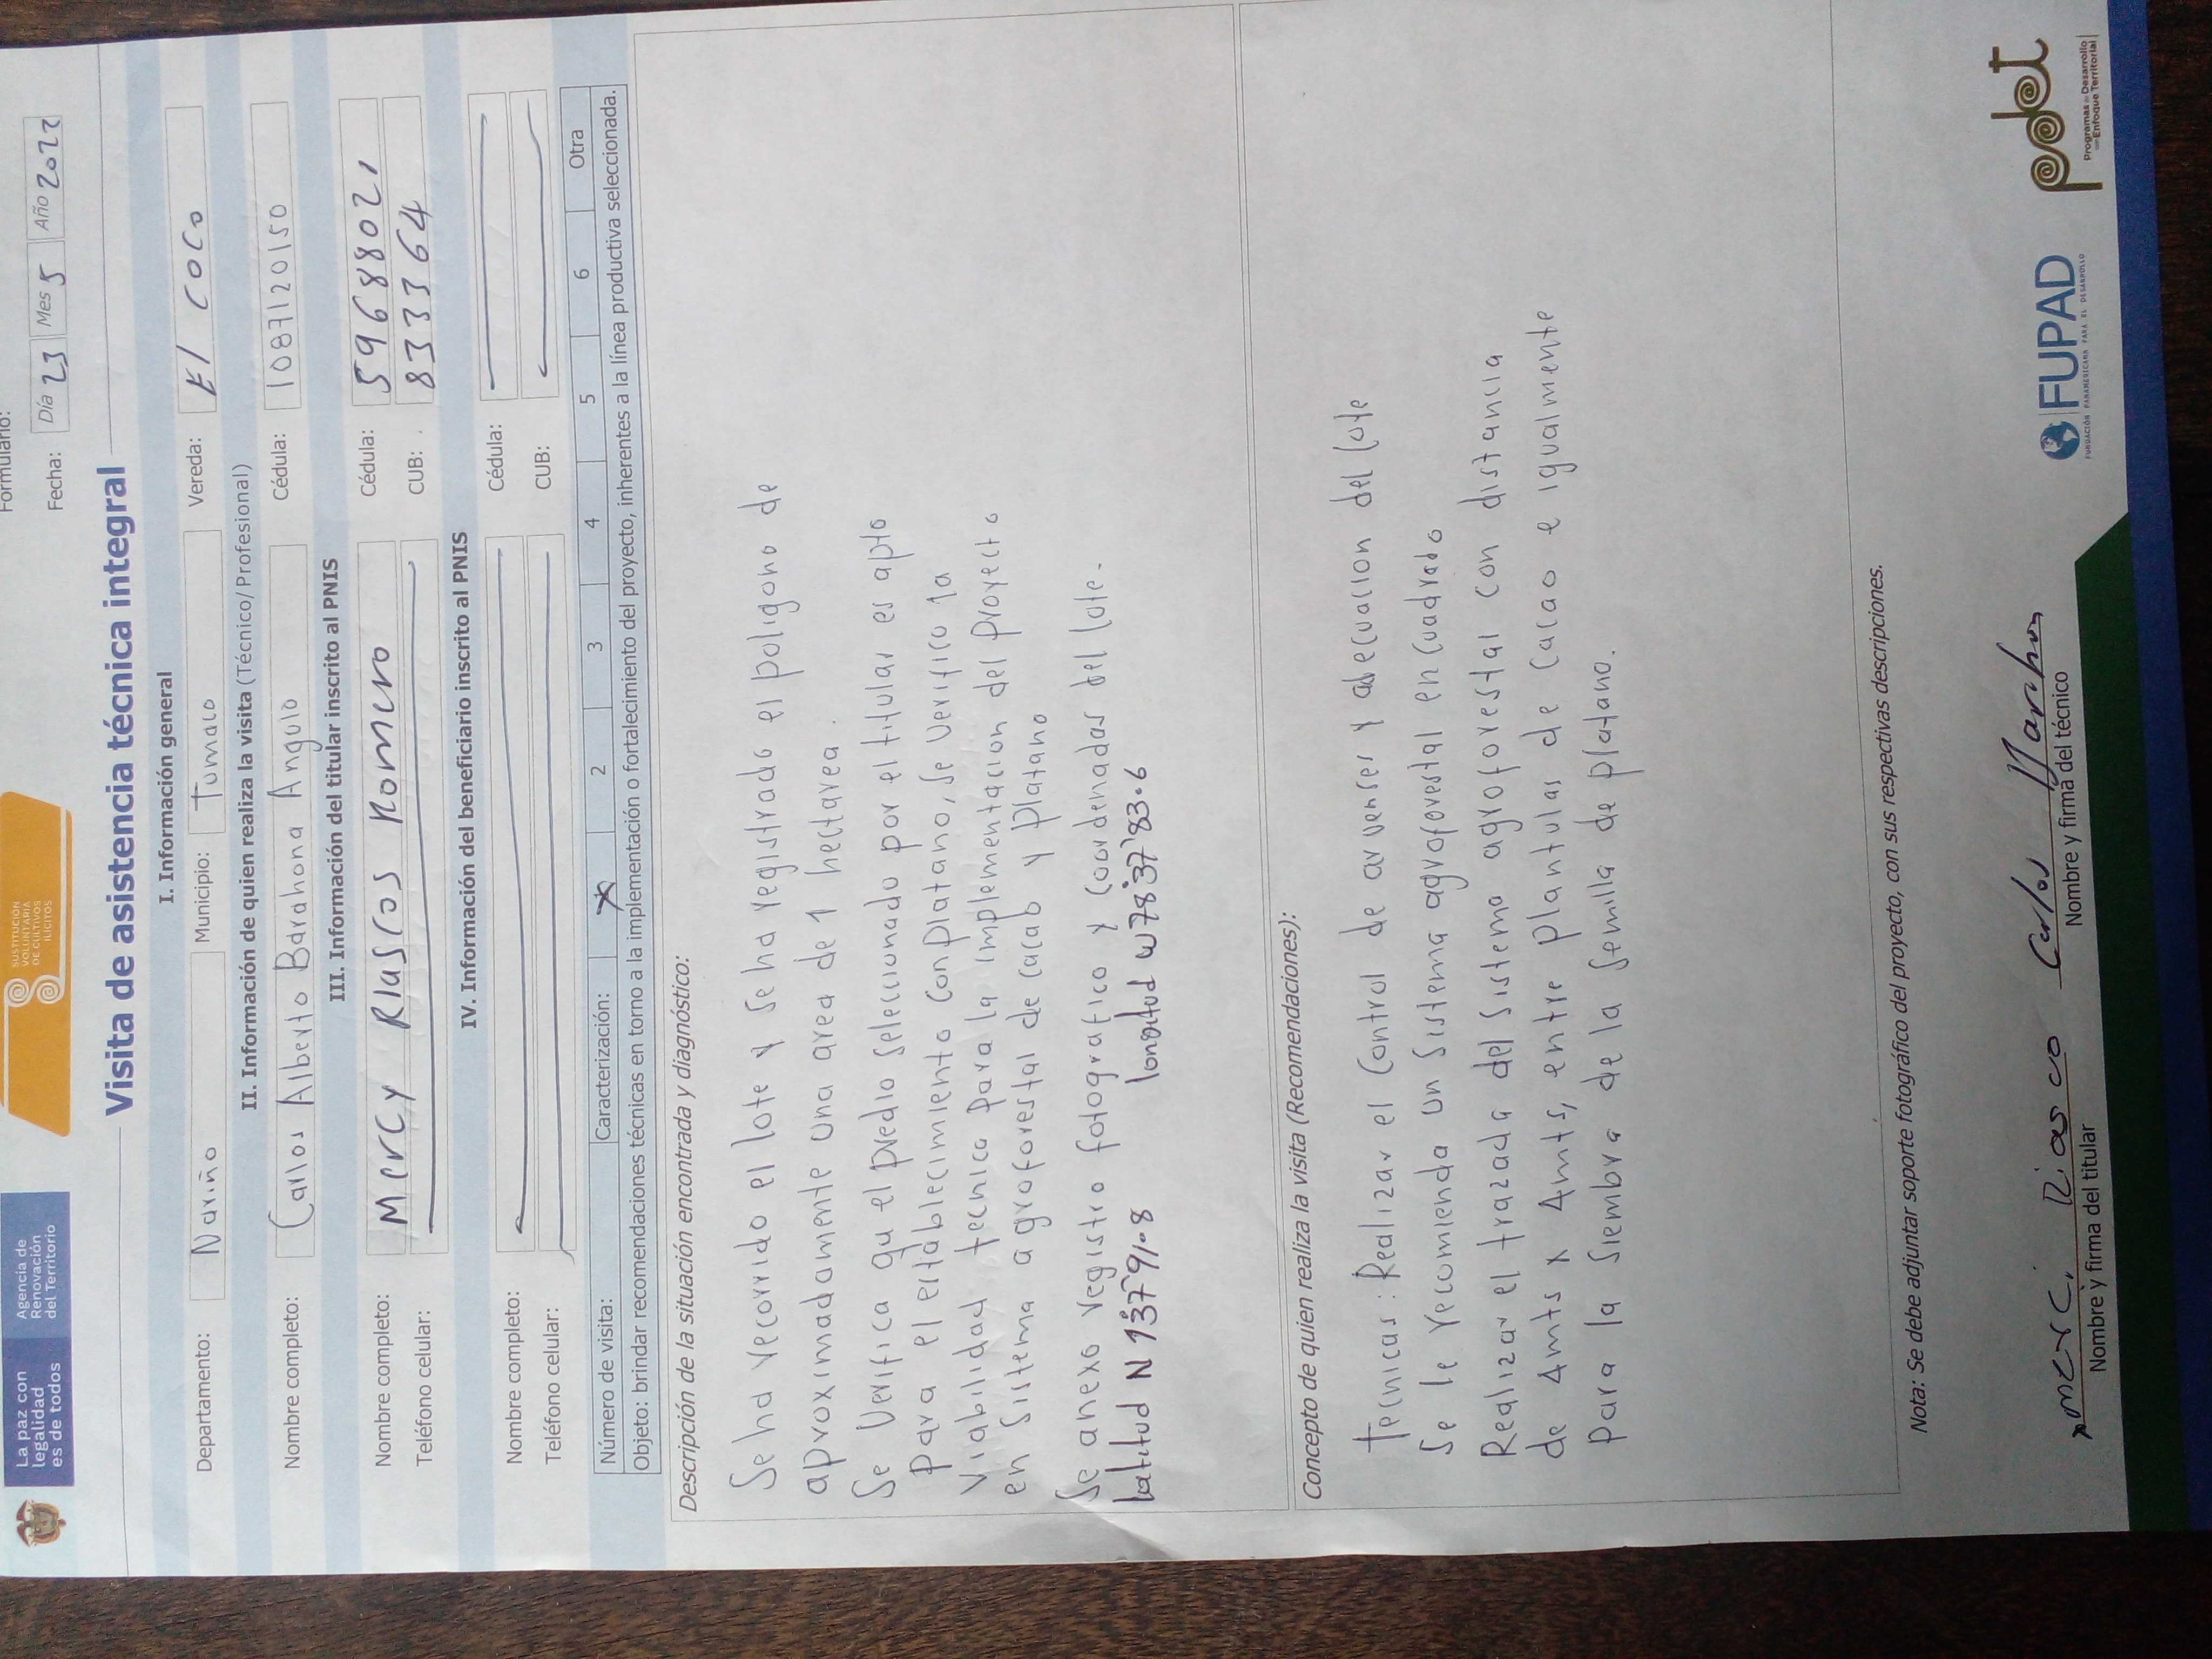 La paz con
legalidad
es de todos
Agencia de
Renovación
del Territorio
SUSTITUCIÓN
VOLUNTARIA
DE CULTIVOS
ILÍCITOS
Formulario:
Fecha: Día 23 Mes 5 Año 2022
Visita de asistencia técnica integral
I. Información general
Departamento: Nariño Municipio: Tumaco Vereda: El COCO
II. Información de quien realiza la visita (Técnico/Profesional)
Nombre completo: Carlos Alberto Barahona Angulo Cédula: 1087120150
III. Información del titular inscrito al PNIS
Nombre completo: Mercy Riascos Romero Cédula: 59688021
Teléfono celular: CUB: 8333364
IV. Información del beneficiario inscrito al PNIS
Nombre completo: Cédula:
Teléfono celular: CUB:
Número de visita: Caracterización: X 2 3 4 5 6 Otra
Objeto: brindar recomendaciones técnicas en torno a la implementación o fortalecimiento del proyecto, inherentes a la línea productiva seleccionada.
Descripción de la situación encontrada y diagnóstico:
Se ha recorrido el lote y se ha registrado el poligono de
aproximadamente una area de 1 hectarea.
Se Verifica qu el predio seleccionado por el titular es apto
para el establecimiento con platano, se verifico la
Viabilidad tecnica para la implementacion del proyecto
en sistema agroforestal de cacao y platano
Se anexo registro fotografico y coordenadas del lote.
latitud N 1°37'91.8 longitud W 78°37'83.6
Concepto de quien realiza la visita (Recomendaciones):
Tecnicas: Realizar el Control de arvenses y adecuacion del lote
Se le recomienda un sistema agroforestal en cuadrado
Realizar el trazada del sistema agroforestal con distancia
de 4mts x 4mts, entre plantulas de cacao e igualmente
para la siembra de la semilla de platano.
Nota: Se debe adjuntar soporte fotográfico del proyecto, con sus respectivas descripciones.
x merci Riasco Carlos Barahona
Nombre y firma del titular Nombre y firma del técnico
FUPAD
FUNDACIÓN PANAMERICANA PARA EL DESARROLLO
pdet
Programas de Desarrollo
con Enfoque Territorial